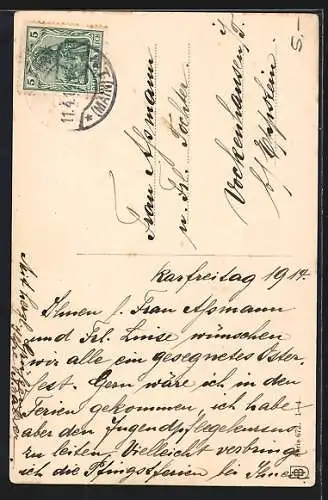 5.–
5
5
11.4.1
(MAIN)
Frau Aßmann
u. Frl. Tochter
i.
Vockenhausen, T.
b/ Eppstein.
Karfreitag 1914.
Ihnen l. Frau Aßmann
und Frl. Luise wünschen
wir alle ein gesegnetes Oster
fest. Gern wäre ich in den
Ferien gekommen, ich habe
aber den Jugendpflegekursus
zu leiten. Vielleicht verbringe
ich die Pfingstferien bei Ihnen
Mit herzl. Grüßen
Serie 672. 1–4